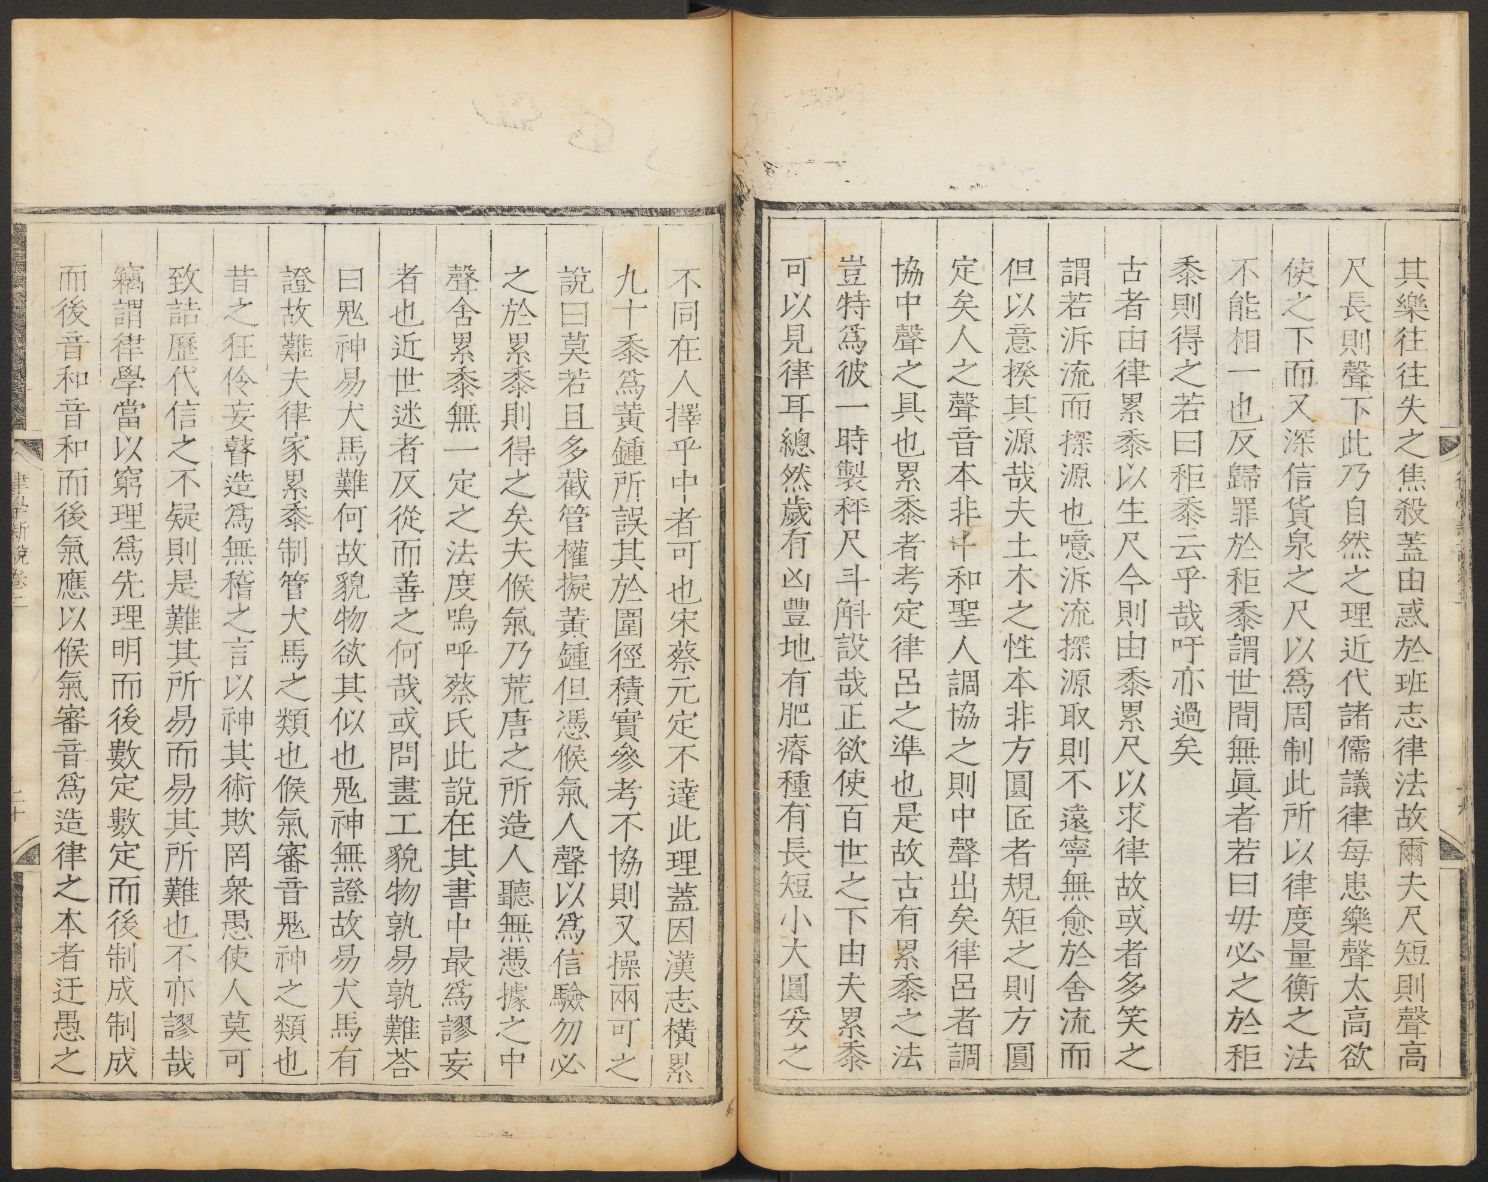 其樂往往失之焦殺蓋由惑於班志律法故爾夫尺短則聲高
尺長則聲下此乃自然之理近代諸儒議律每患樂聲太高欲
使之下而又深信貨泉之尺以爲周制此所以律度量衡之法
不能相一也反歸罪於秬黍謂世間無眞者若曰毋必之於秬
黍則得之若曰秬黍云乎哉吁亦過矣
古者由律累黍以生尺今則由黍累尺以求律故或者多笑之
謂若泝流而探源也噫泝流探源取則不遠寧無愈於舍流而
但以意揆其源哉夫土木之性本非方圓匠者規矩之則方圓
定矣人之聲音本非中和聖人調協之則中聲出矣律呂者調
協中聲之具也累黍者考定律呂之準也是故古有累黍之法
豈特爲彼一時製秤尺斗斛設哉正欲使百世之下由夫累黍
可以見律耳總然歲有凶豐地有肥瘠種有長短小大圓妥之
不同在人擇乎中者可也宋蔡元定不達此理蓋因漢志橫累
九十黍爲黃鍾所誤其於圍徑積實參考不協則又操兩可之
說曰莫若且多截管權擬黃鍾但憑候氣人聲以爲信驗勿必
之於累黍則得之矣夫候氣乃荒唐之所造人聽無憑據之中
聲舍累黍無一定之法度嗚呼蔡氏此說在其書中最爲謬妄
者也近世迷者反從而善之何哉或問畫工貌物孰易孰難荅
曰鬼神易犬馬難何故貌物欲其似也鬼神無證故易犬馬有
證故難夫律家累黍制管犬馬之類也候氣審音鬼神之類也
昔之狂伶妄瞽造爲無稽之言以神其術欺罔衆愚使人莫可
致詰歷代信之不疑則是難其所易而易其所難也不亦謬哉
竊謂律學當以窮理爲先理明而後數定數定而後制成制成
而後音和音和而後氣應以候氣審音爲造律之本者迂愚之
律學新說卷二
二十